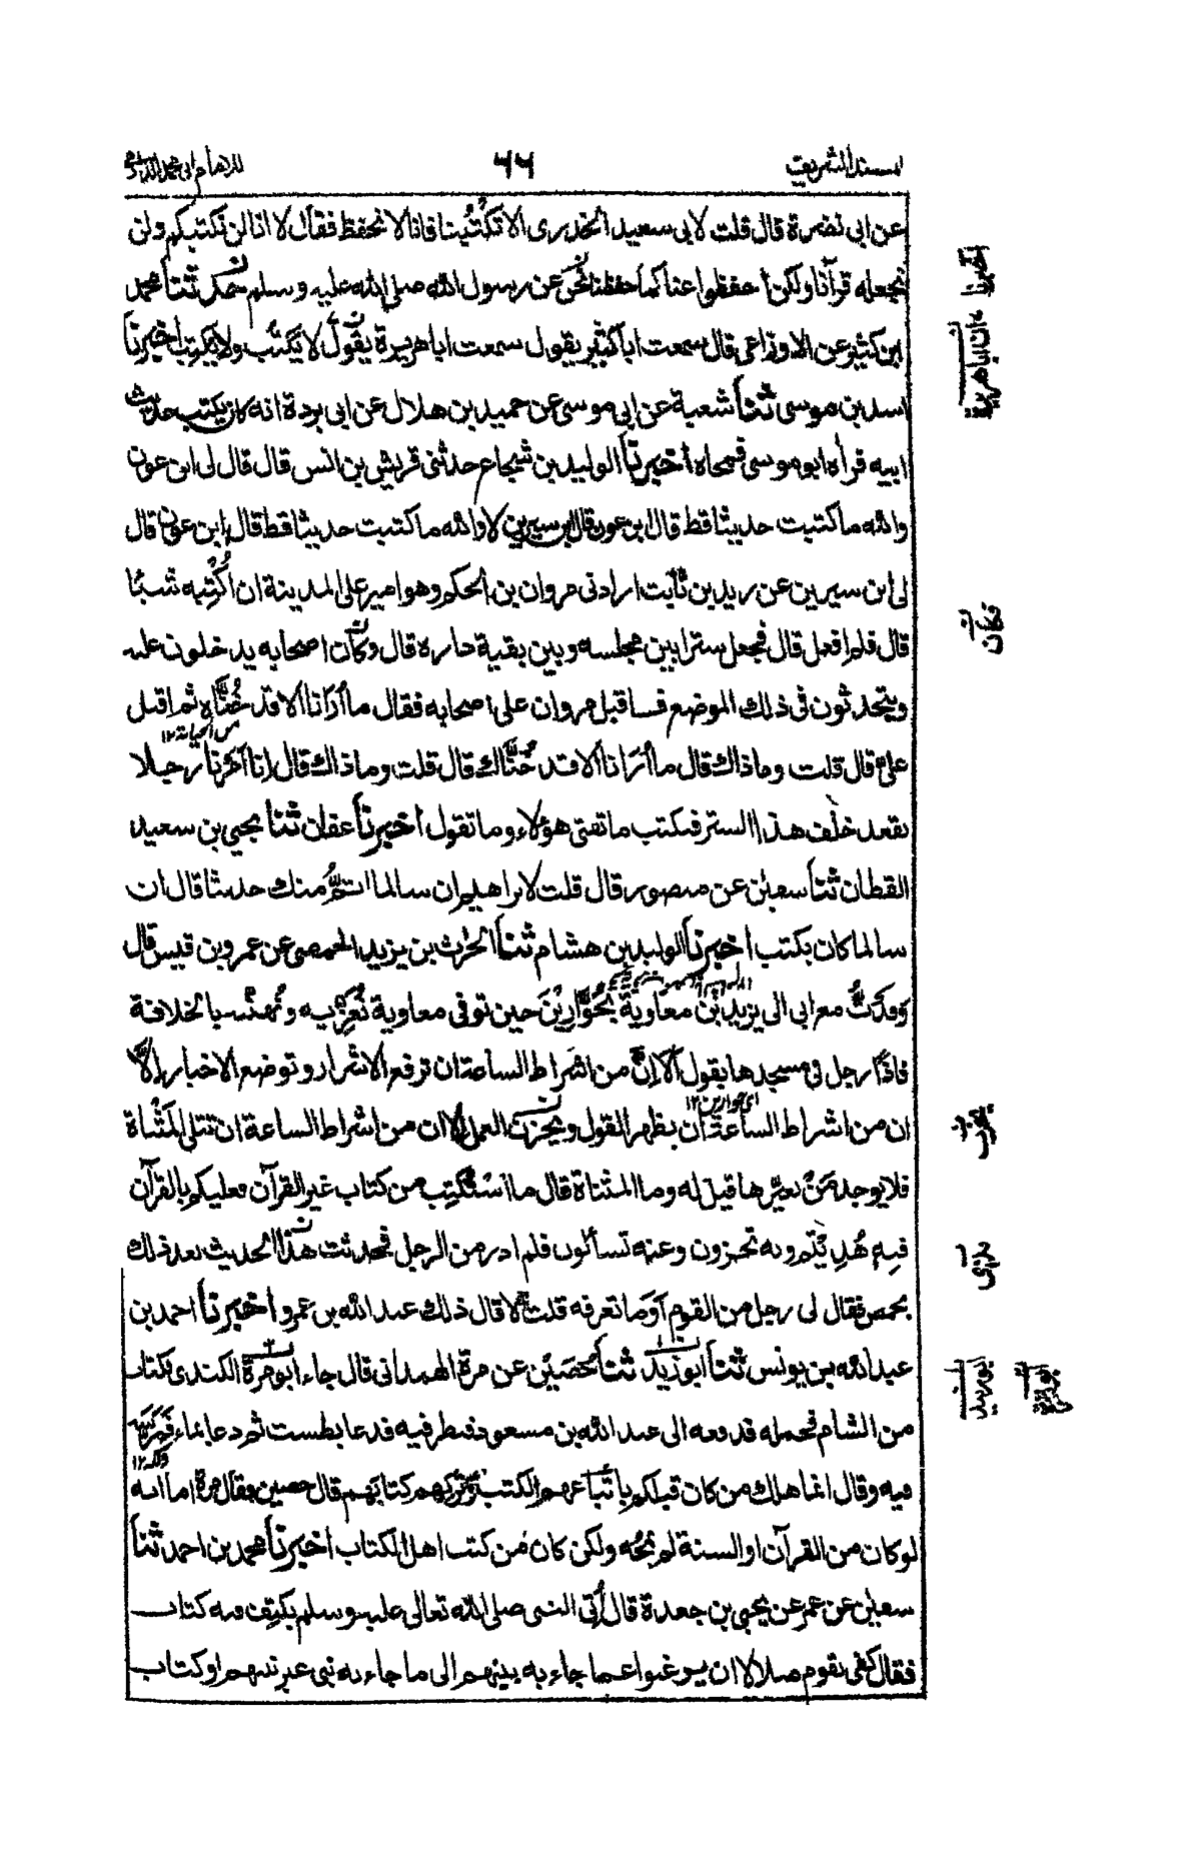 المسند الشريف ٦٦ للامام ابى محمد الدارمى
عن ابى نضرة قال قلت لابى سعيد الخدرى الا تُكْتُبُنا فانا لا نحفظ فقال لا انا لن نكتبكم ولن
نجعله قرآنا ولكن احفظوا عنا كما حفظنا نحن عن رسول الله صلى الله عليه وسلم محمد
ابن كثير عن الاوزاعى قال سمعت ابا كثير يقول سمعت ابا هريرة يقول لا يَكتُب ولا يكتب اخبرنا
اسد بن موسى ثنا شعبة عن ابى موسى عن حميد بن هلال عن ابى بردة انه كان يكتب حديث
ابيه فرأه ابو موسى فمحاه اخبرنا الوليد بن شجاع حدثنى قريش بن انس قال قال لى ابن عون
والله ما كتبت حديثا قط قال ابن عون قال ابن سيرين لا والله ما كتبت حديثا قط قال ابن عون قال
لى ابن سيرين عن زيد بن ثابت ارادنى مروان بن الحكم وهو امير على المدينة ان اُكْتِبه شيئا
قال فلم افعل قال فجعل سترا بين مجلسه وبين بقية داره قال وكان اصحابه يدخلون عليه
ويتحدثون فى ذلك الموضع فاقبل مروان على اصحابه فقال ما اُرَانا الا قد خُنَّاه ثم اقبل
من الخيانة ١٢
علىّ قال قلت وما ذاك قال ما اُرَانا الا قد خُنَّاك قال قلت وما ذاك قال انا امرنا رجلا
يقعد خلف هذا الستر فيكتب ما تفتى هؤلاء وما تقول اخبرنا عفان ثنا يحيى بن سعيد
القطان ثنا سفين عن منصور قال قلت لابراهيم ان سالما اتمُّ منك حديثا قال ان
سالما كان يكتب اخبرنا الوليد بن هشام ثنا الحرث بن يزيد الحمصى عن عمرو بن قيس قال
وَفَدتُّ مع ابى الى يزيد بن معاوية بحُوَّارِيْنَ حين توفى معاوية نُعَزِّيه ونُهنِّيه بالخلافة
فاذا رجل فى مسجدها يقول ألا اِنَّ من اشراط الساعة ان ترفع الاشرار وتوضع الاخيار الا
اى حوارين ١٢
ان من اشراط الساعة ان يظهر القول ويخزن العمل الا ان من اشراط الساعة ان تتلى المَثْناة
فلا يوجد مَنْ يغيّرها قيل له وما المثناة قال ما اسْتُكتِب من كتاب غير القرآن فعليكم بالقرآن
فبه هُدِيْتم وبه تجزون وعنه تسألون فلم ادر من الرجل فحدثت هذا الحديث بعد ذلك
بحمص فقال لى رجل من القوم أوَما تعرفه قلت لا قال ذلك عبد الله بن عمرو اخبرنا احمد بن
عبد الله بن يونس ثنا ابو زبيد ثنا حُصَيْن عن مرة الهمدانى قال جاء ابو مرة الكندى بكتاب
من الشام فحمله فدفعه الى عبد الله بن مسعود فنظر فيه فدعا بطست ثم دعا بماء فَمَرَسَه
دلكه ١٢
فيه وقال انما هلك من كان قبلكم باتّباعهم الكتب وتركهم كتابهم قال حصين فقال مرة اما انه
لو كان من القرآن او السنة لم يمحُه ولكن كان من كتب اهل الكتاب اخبرنا محمد بن احمد ثنا
سفين عن عمرو عن يحيى بن جعدة قال اُتِى النبى صلى الله تعالى عليه وسلم بكتِف فيه كتاب
فقال كفى بقوم ضلالا ان يرغبوا عما جاء به نبيهم الى ما جاء به نبى غير نبيهم او كتاب
اخبرنا
ان ابا هريرة
فكان